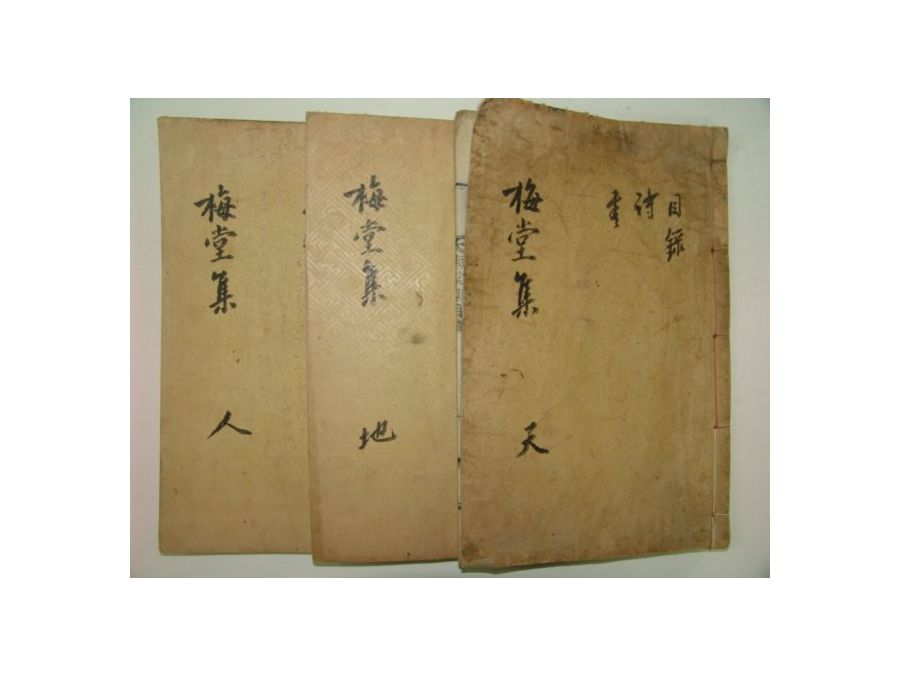 目錄
詩
書
梅堂集 天
梅堂集 地
梅堂集 人